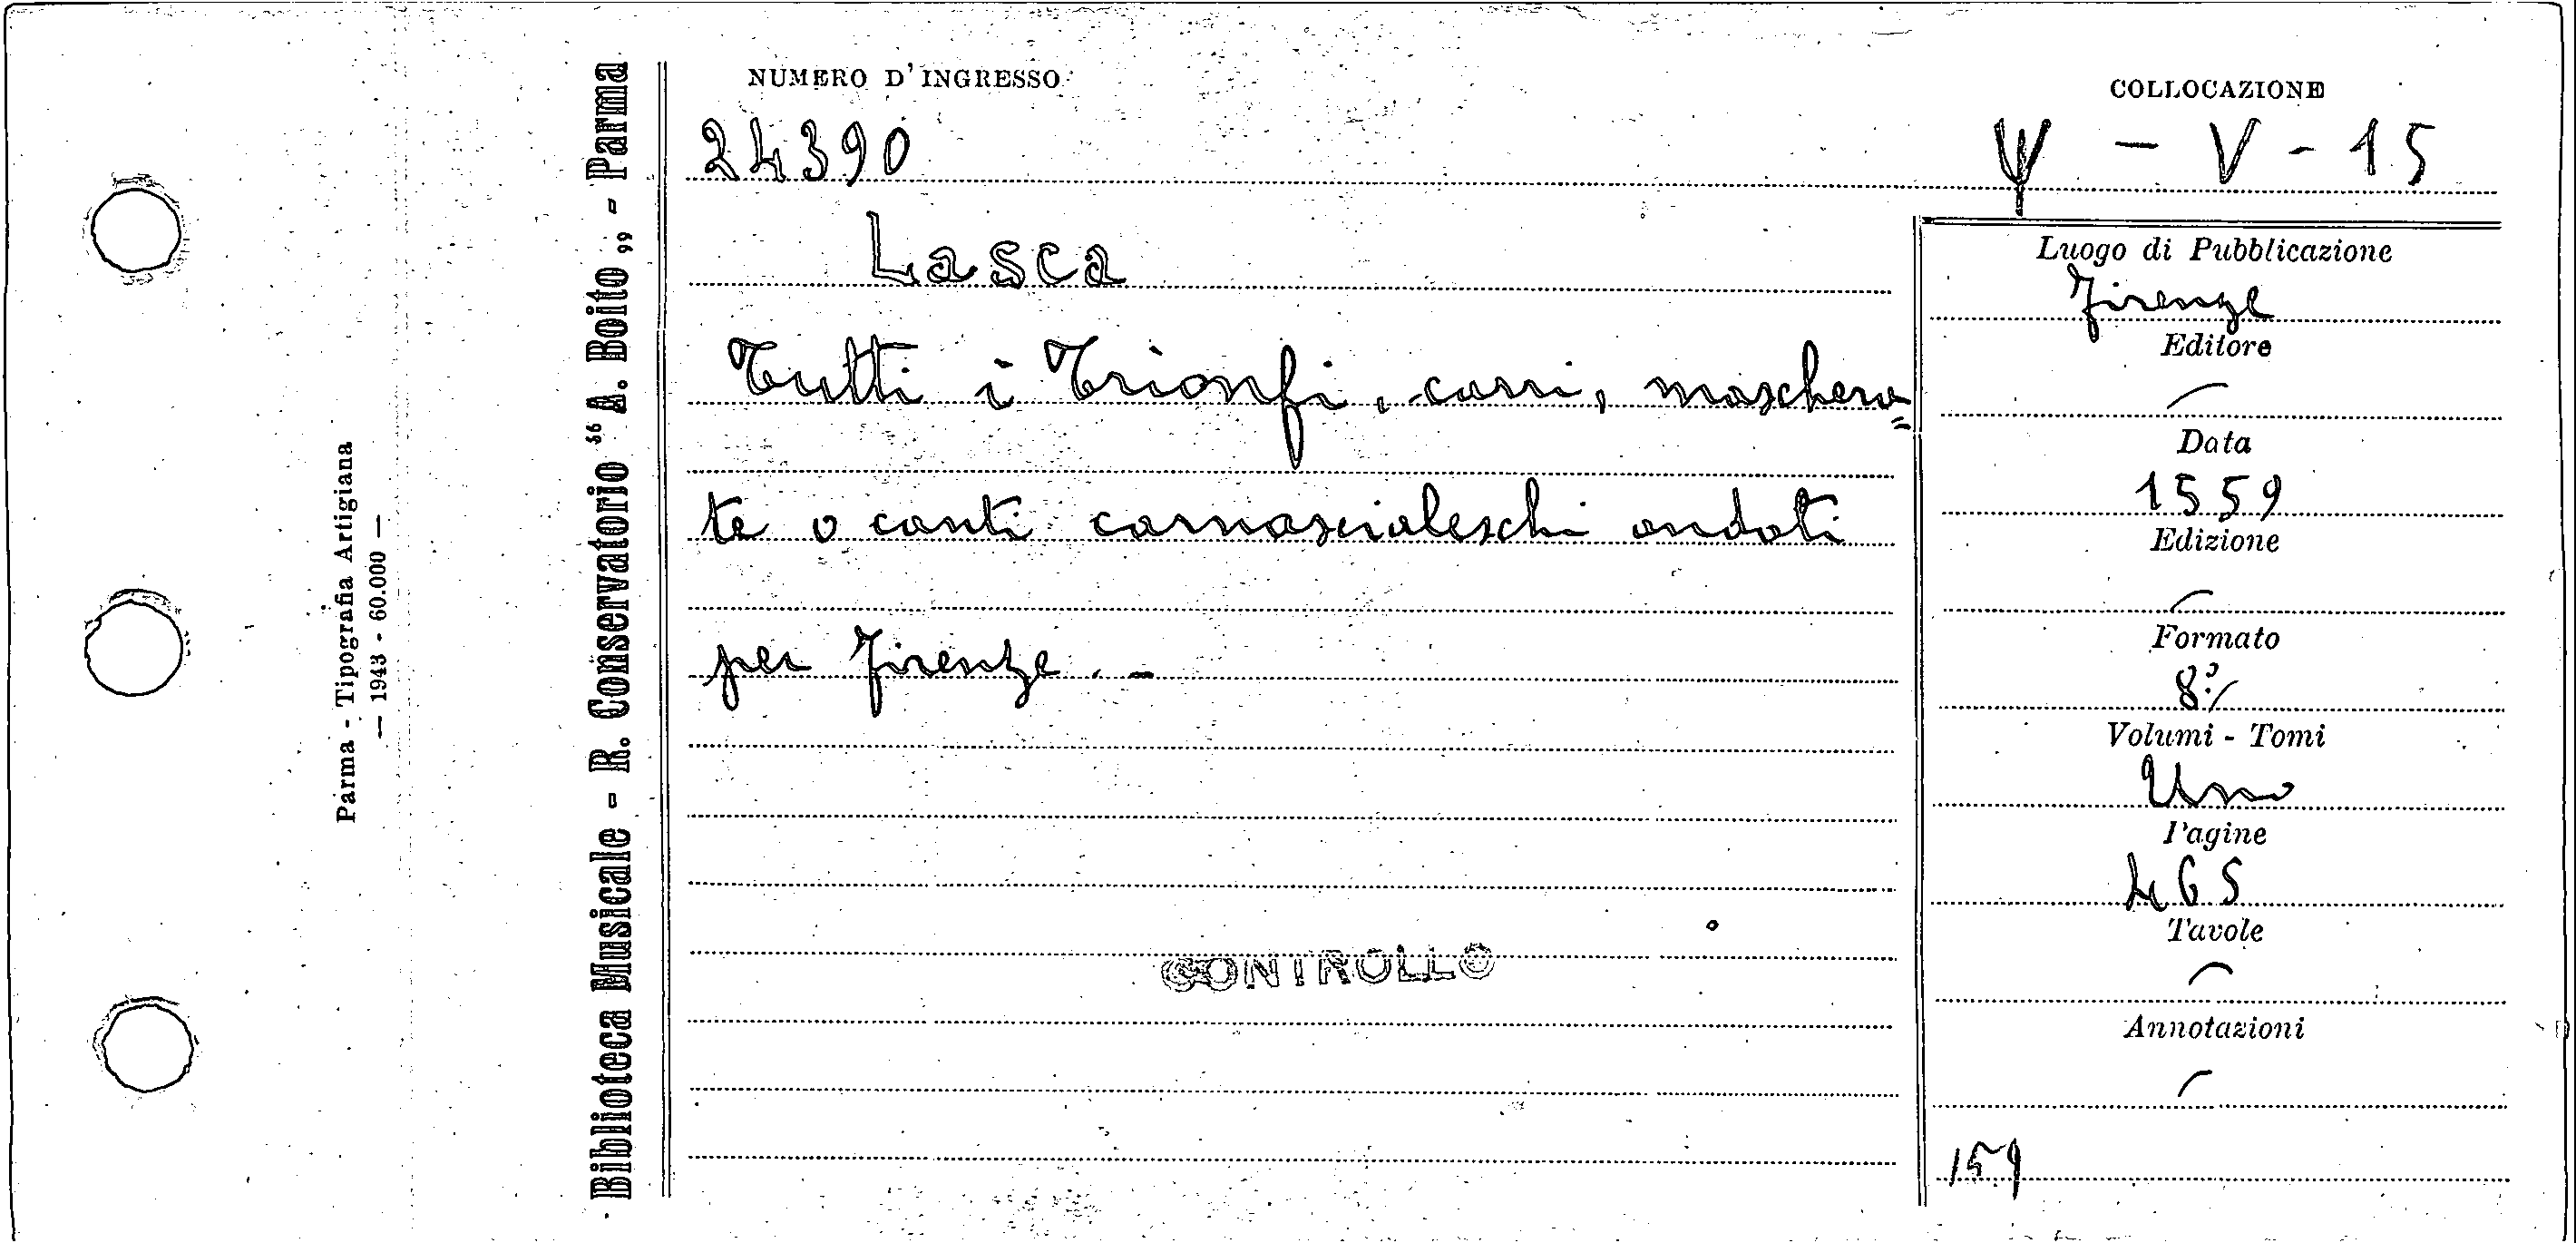 NUMERO D'INGRESSO
24390
COLLOCAZIONE
Ψ - V - 15
Lasca
Tutti i Trionfi, carri, maschera=
te o canti carnascialeschi andati
per Firenze. -
CONTROLLO
Luogo di Pubblicazione
Firenze
Editore
Data
1559
Edizione
Formato
8°
Volumi - Tomi
Uno
Pagine
465
Tavole
Annotazioni
159
Biblioteca Musicale - R. Conservatorio "A. Boito,, - Parma
Parma - Tipografia Artigiana
— 1943 - 60.000 —